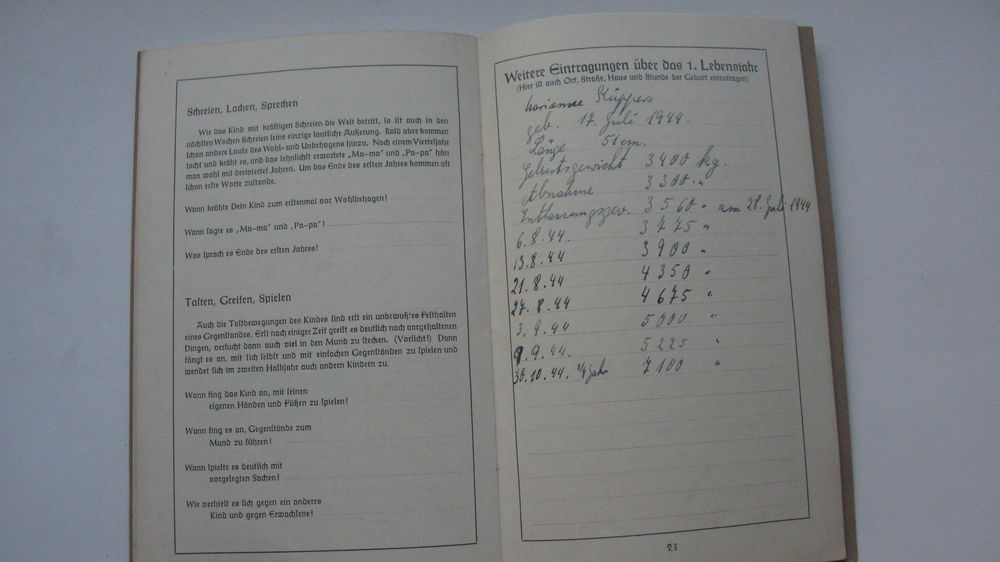 Schreien, Lachen, Sprechen
Wie das Kind mit kräftigem Schreien die Welt betritt, so ist auch in den
nächsten Wochen Schreien seine einzige lautliche Äußerung. Bald aber kommen
schon andere Laute des Wohl- und Unbehagens hinzu. Nach einem Vierteljahr
lacht und kräht es, und das sehnlichst erwartete „Ma-ma" und „Pa-pa" hört
man wohl mit dreiviertel Jahren. Um das Ende des ersten Jahres kommen oft
schon erste Worte zustande.
Wann krähte Dein Kind zum erstenmal vor Wohlbehagen?
Wann sagte es „Ma-ma" und „Pa-pa"?
Was sprach es Ende des ersten Jahres?
Tasten, Greifen, Spielen
Auch die Tastbewegungen des Kindes sind erst ein unbewußtes Festhalten
eines Gegenstandes. Erst nach einiger Zeit greift es deutlich nach vorgehaltenen
Dingen, versucht dann auch viel in den Mund zu stecken. (Vorsicht!) Dann
fängt es an, mit sich selbst und mit einfachen Gegenständen zu spielen und
wendet sich im zweiten Halbjahr auch andern Kindern zu.
Wann fing das Kind an, mit seinen
eigenen Händen und Füßen zu spielen?
Wann fing es an, Gegenstände zum
Mund zu führen?
Wann spielte es deutlich mit
vorgelegten Sachen?
Wie verhielt es sich gegen ein anderes
Kind und gegen Erwachsene?
Weitere Eintragungen über das 1. Lebensjahr
(Hier ist auch Ort, Straße, Haus und Stunde der Geburt einzutragen)
Marianne Küppers
geb. 17. Juli 1944.
Länge 51 cm.
Geburtsgewicht 3400 kg.
Abnahme 3300 "
Entlassungsgew. 3560 " am 28. Juli 1944
6.8.44. 3775 "
13.8.44 3900 "
21.8.44 4350 "
27.8.44 4675 "
3.9.44 5000 "
9.9.44. 5225 "
30.10.44. 1/4 Jahr 7100 "
23